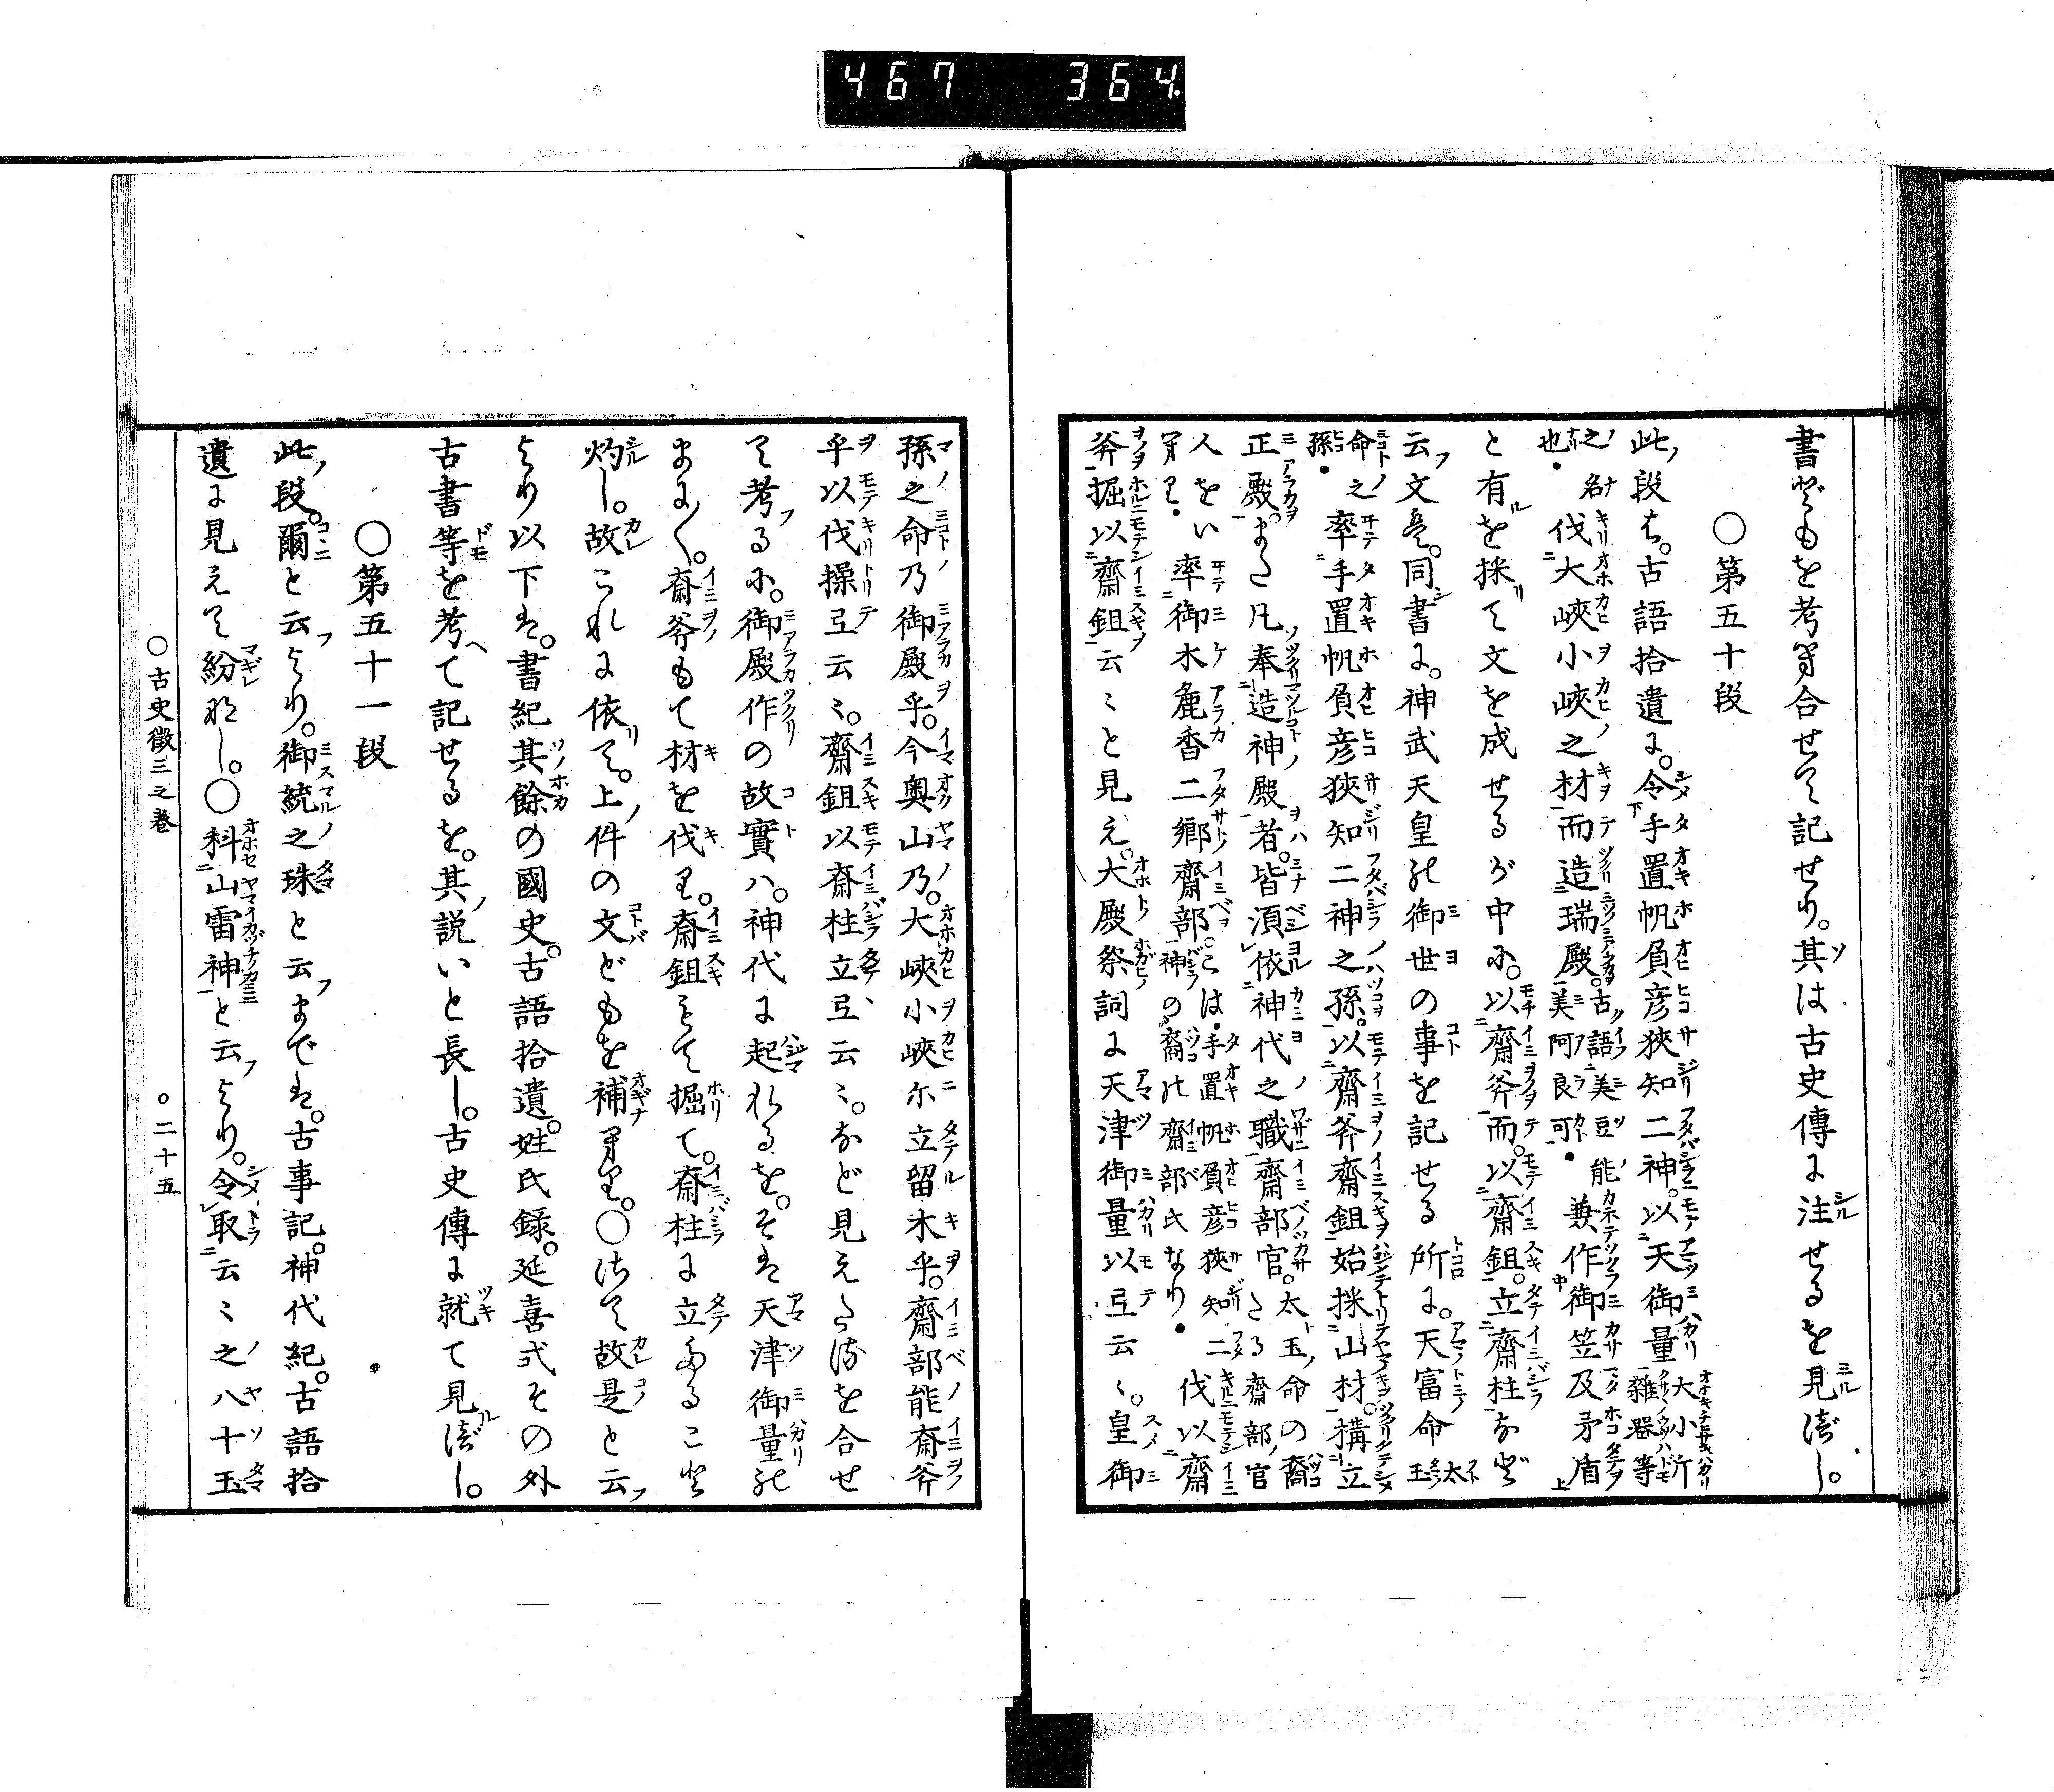 467 364
書どもを考へ合せて記せり。其は古史傳に注せるを見べし。
〇第五十段
此段は。古語拾遺に。令手置帆負彦狹知二神。以天御量大小斤雜器等
之名也。伐大峽小峽之材而造瑞殿。古語美豆能美阿良可。兼作御笠及矛盾
と有を採て文を成せるが中に。以齋斧而。以齋鉏。立齋柱など
云文は。同書に。神武天皇の御世の事を記せる所に。天富命太玉
命之孫。率手置帆負彦狹知二神之孫。以齋斧齋鉏始採山材。構立
正殿。また凡奉造神殿者。皆須依神代之職齋部官。太玉命の裔たる齋部官
人をいへり。率御木麁香二郷齋部。こは手置帆負彦狹知二神の裔の齋部氏なり。伐以齋
斧掘以齋鉏云々と見え。大殿祭詞に天津御量以弖云々。皇御
孫之命乃御殿乎。今奥山乃。大峽小峽尓立留木乎。齋部能斎斧
乎以伐操弖云々。齋鉏以斎柱立弖云々。など見えたるを合せ
て考るに。御殿作の故實ハ。神代に起れるを。そは天津御量の
まに〱。斎斧もて材を伐り。斎鉏もて掘て。斎柱に立たること
灼し。故これに依て。上件の文どもを補へり。〇さて故是と云
より以下は。書紀其餘の國史。古語拾遺。姓氏録。延喜式その外
古書等を考へて記せるを。其説いと長し。古史傳に就て見べし。
〇第五十一段
此段。爾と云より。御統之珠と云までは。古事記。神代紀。古語拾
遺に見えて紛なし。〇科山雷神と云より。令取云々之八十玉
〇古史徴三之巻 〇二十五